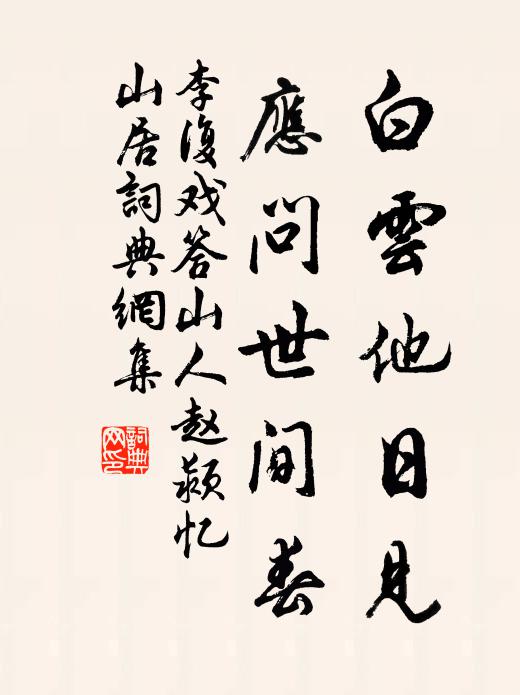 白雲他日見
應問世間春
李復戏答山人赵蘋忆
山居詞典網集
詞典網印